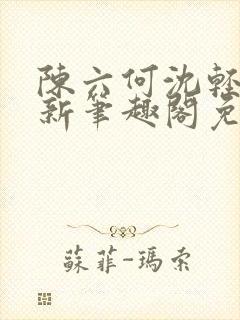 陳六何沈輕
新筆趣閣免
蘇菲-瑪索